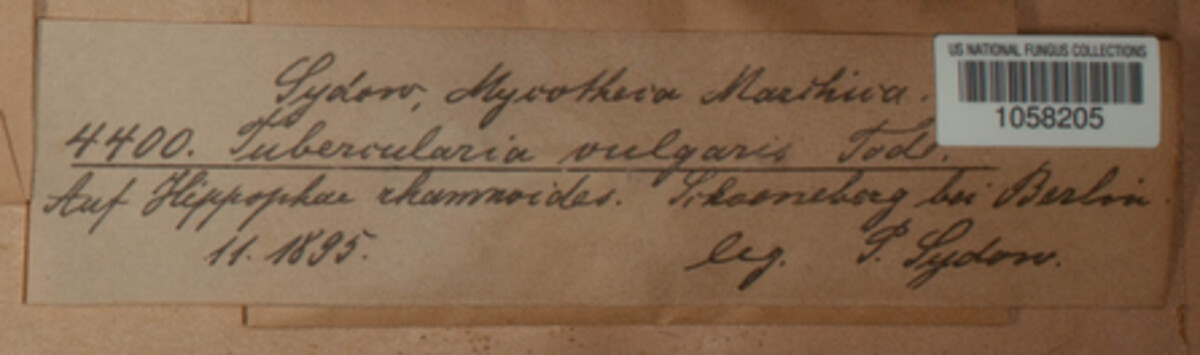 US NATIONAL FUNGUS COLLECTIONS
1058205
Sydow, Mycotheca Marchica.
4400. Tubercularia vulgaris Tode.
Auf Hippophae rhamnoides. Schoeneberg bei Berlin.
11. 1895. leg. P. Sydow.